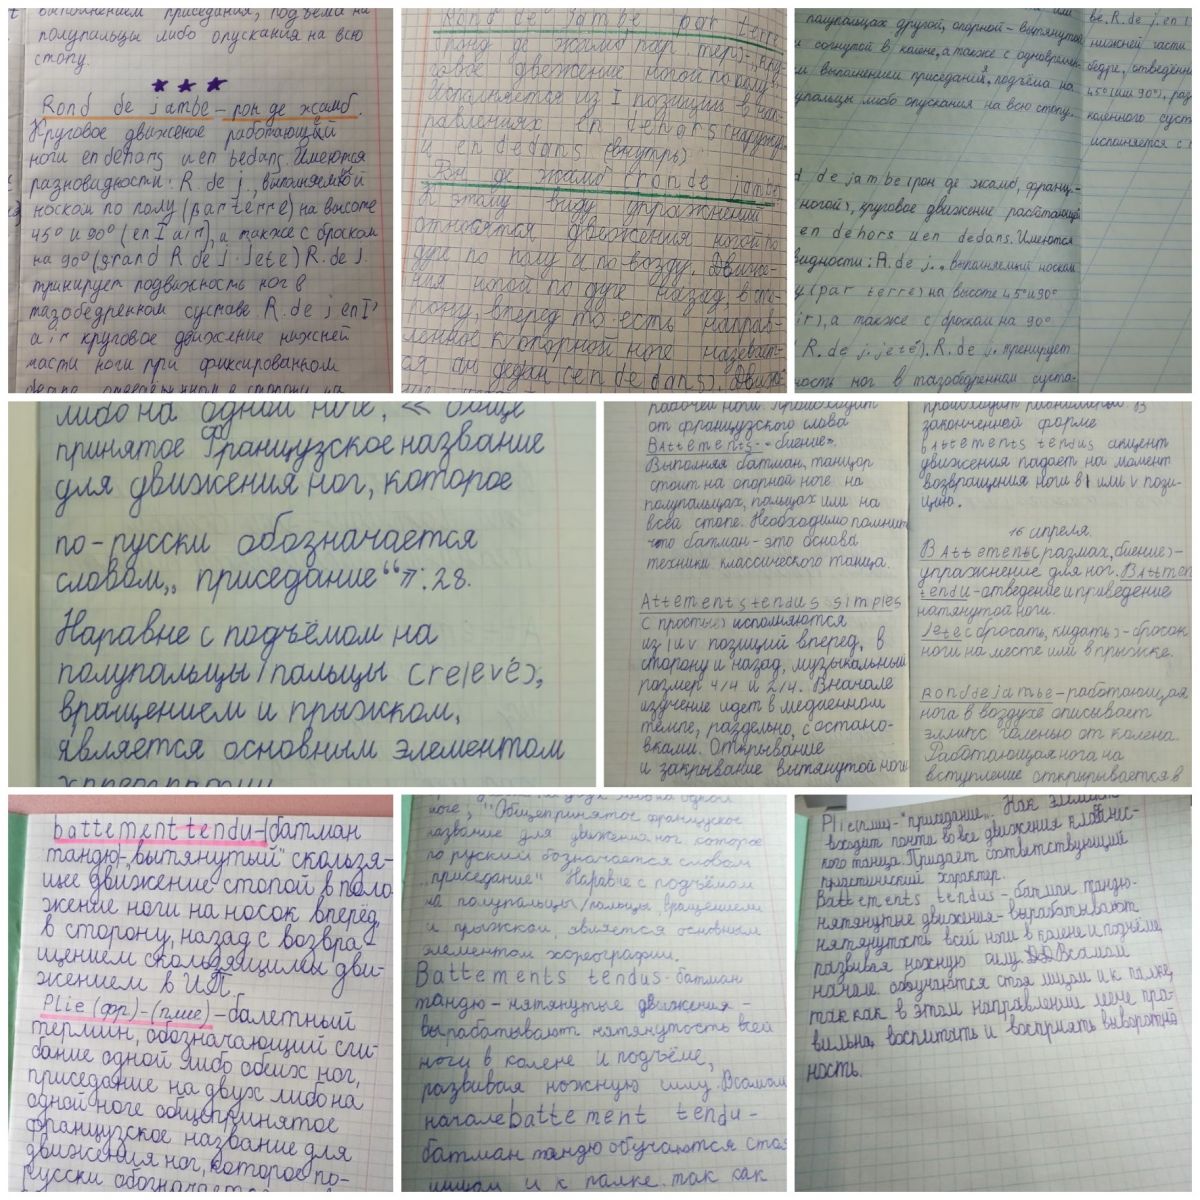 выполнением приседания, подъёма на
полупальцы либо опускания на всю
стопу.
Rond de jambe - рон де жамб.
Круговое движение работающей
ноги en dehors и en bedans. Имеются
разновидности: R. de j., выполняемый
носком по полу (par terre) на высоте
45° и 90° (en l air), а также с броском
на 90° (grand R. de j. jete) R. de j.
тринирует подвижность ног в
тазобедренном суставе. R. de j en l'
air круговое движение нижней
части ноги при фиксированном
Rond de jambe par terre
(ронд де жамб пар тер) -
говое движение ногой по полу.
Исполняется из I позиции в нап-
равлениях en dehors (наружу)
и en dedans (внутрь)
Рон де жамб (ronde jambe
К этому виду упражнений
относятся движения ногой по
дуге по полу и по воздуху. Движе-
ния ногой по дуге назад, в сто-
рону, вперед то есть направ-
ленное к опорной ноге называет-
ся ан дедан (en dedans). Движе-
полупальцах другой, опорной - вытянутой
и согнутой в колене, а также с одновремен-
м выполнением приседания, подъёма на
упальцы либо опускания на всю стопу.
ве. R. de j. en l
нижней части
бедре, отведённо
45° (или 90°), раз
коленного суст
исполняется с
d de jambe (рон де жамб, франц.-
ногой), круговое движение работающей
en dehors и en dedans. Имеются
видности: R. de j., выполняемый носком
у (par terre) на высоте 45° и 90°
ir), а также с броском на 90°
R. de j. jeté). R. de j. тренирует
ность ног в тазобедренном суста-
либо на одной ноге, « обще
принятое французское название
для движения ног, которое
по-русски обозначается
словом „ приседание“ п: 28.
Наравне с подъёмом на
полупальцы/пальцы (relevé),
вращением и прыжком,
является основным элементом
хореографии
рабочей ноги. Происходит
от французского слова
Battements - «биение».
Выполняя батман, танцор
стоит на опорной ноге на
полупальцах, пальцах или на
всей стопе. Необходимо помнить
что батман - это основа
техники классического танца.
Attements tendus simples
(простые) исполняются
из I и V позиций вперед, в
сторону и назад, музыкальный
размер 4/4 и 2/4. Вначале
изучение идет в медленном
темпе, раздельно, с остано-
вками. Открывание
и закрывание вытянутой ноги
происходит равномерно. В
законченной форме
battements tendus акцент
движения падает на момент
возвращения ноги в I или V пози-
цию.
16 апреля.
Battements (размах, биение) -
упражнение для ног. Battemen
tendu - отведение и приведение
натянутой ноги.
Jete (бросать, кидать) - бросок
ноги на месте или в прыжке.
Rond de jambe - работающая
нога в воздухе описывает
эллипс голенью от колена.
Работающая нога на
вступление открырывается в
battement tendu - (батман
тандю-„вытянутый“ скользя-
щее движение стопой в поло
жение ноги на носок вперёд,
в сторону, назад с возвра-
щением скользящимы дви-
жением в ИП.
Plie (фр) - (плие) - балетный
термин, обозначающий сги-
бание одной либо обеих ног,
приседание на двух либо на
одной ноге общепринятое
французское название для
движения ног, которое по-
русски обозначается
ноге, "Общепринятое французское
название для движения ног, которое
по руский бозначается словом
„приседание“ Наравне с подъёмом
на полупальцы/пальцы, вращением
и прыжком, является основным
элементом хореографии.
Battements tendus - батман
тандю - нятянутые движения -
вырабатывают нятянутость всей
ногу в колене и подъёме,
развивая ножную силу. Всамом
начале battement tendu -
батман тандю обучаются стоя
лицом и к палке. так как
Plie (плие) - "приседание". Как элемент
входит почти во все движения классичес-
кого танца. Придает соответствующий
пластический характер.
Battements tendus - батман тандю-
нятянутые движения - вырабатывают
нятянутость всей ноги в колене и подъёме,
развивая ножную силу. Всамом
начале обучаются стоя лицом и к палке,
так как в этом направлении легче пра-
вильна, воспитать и воспринять выворотно
ность.